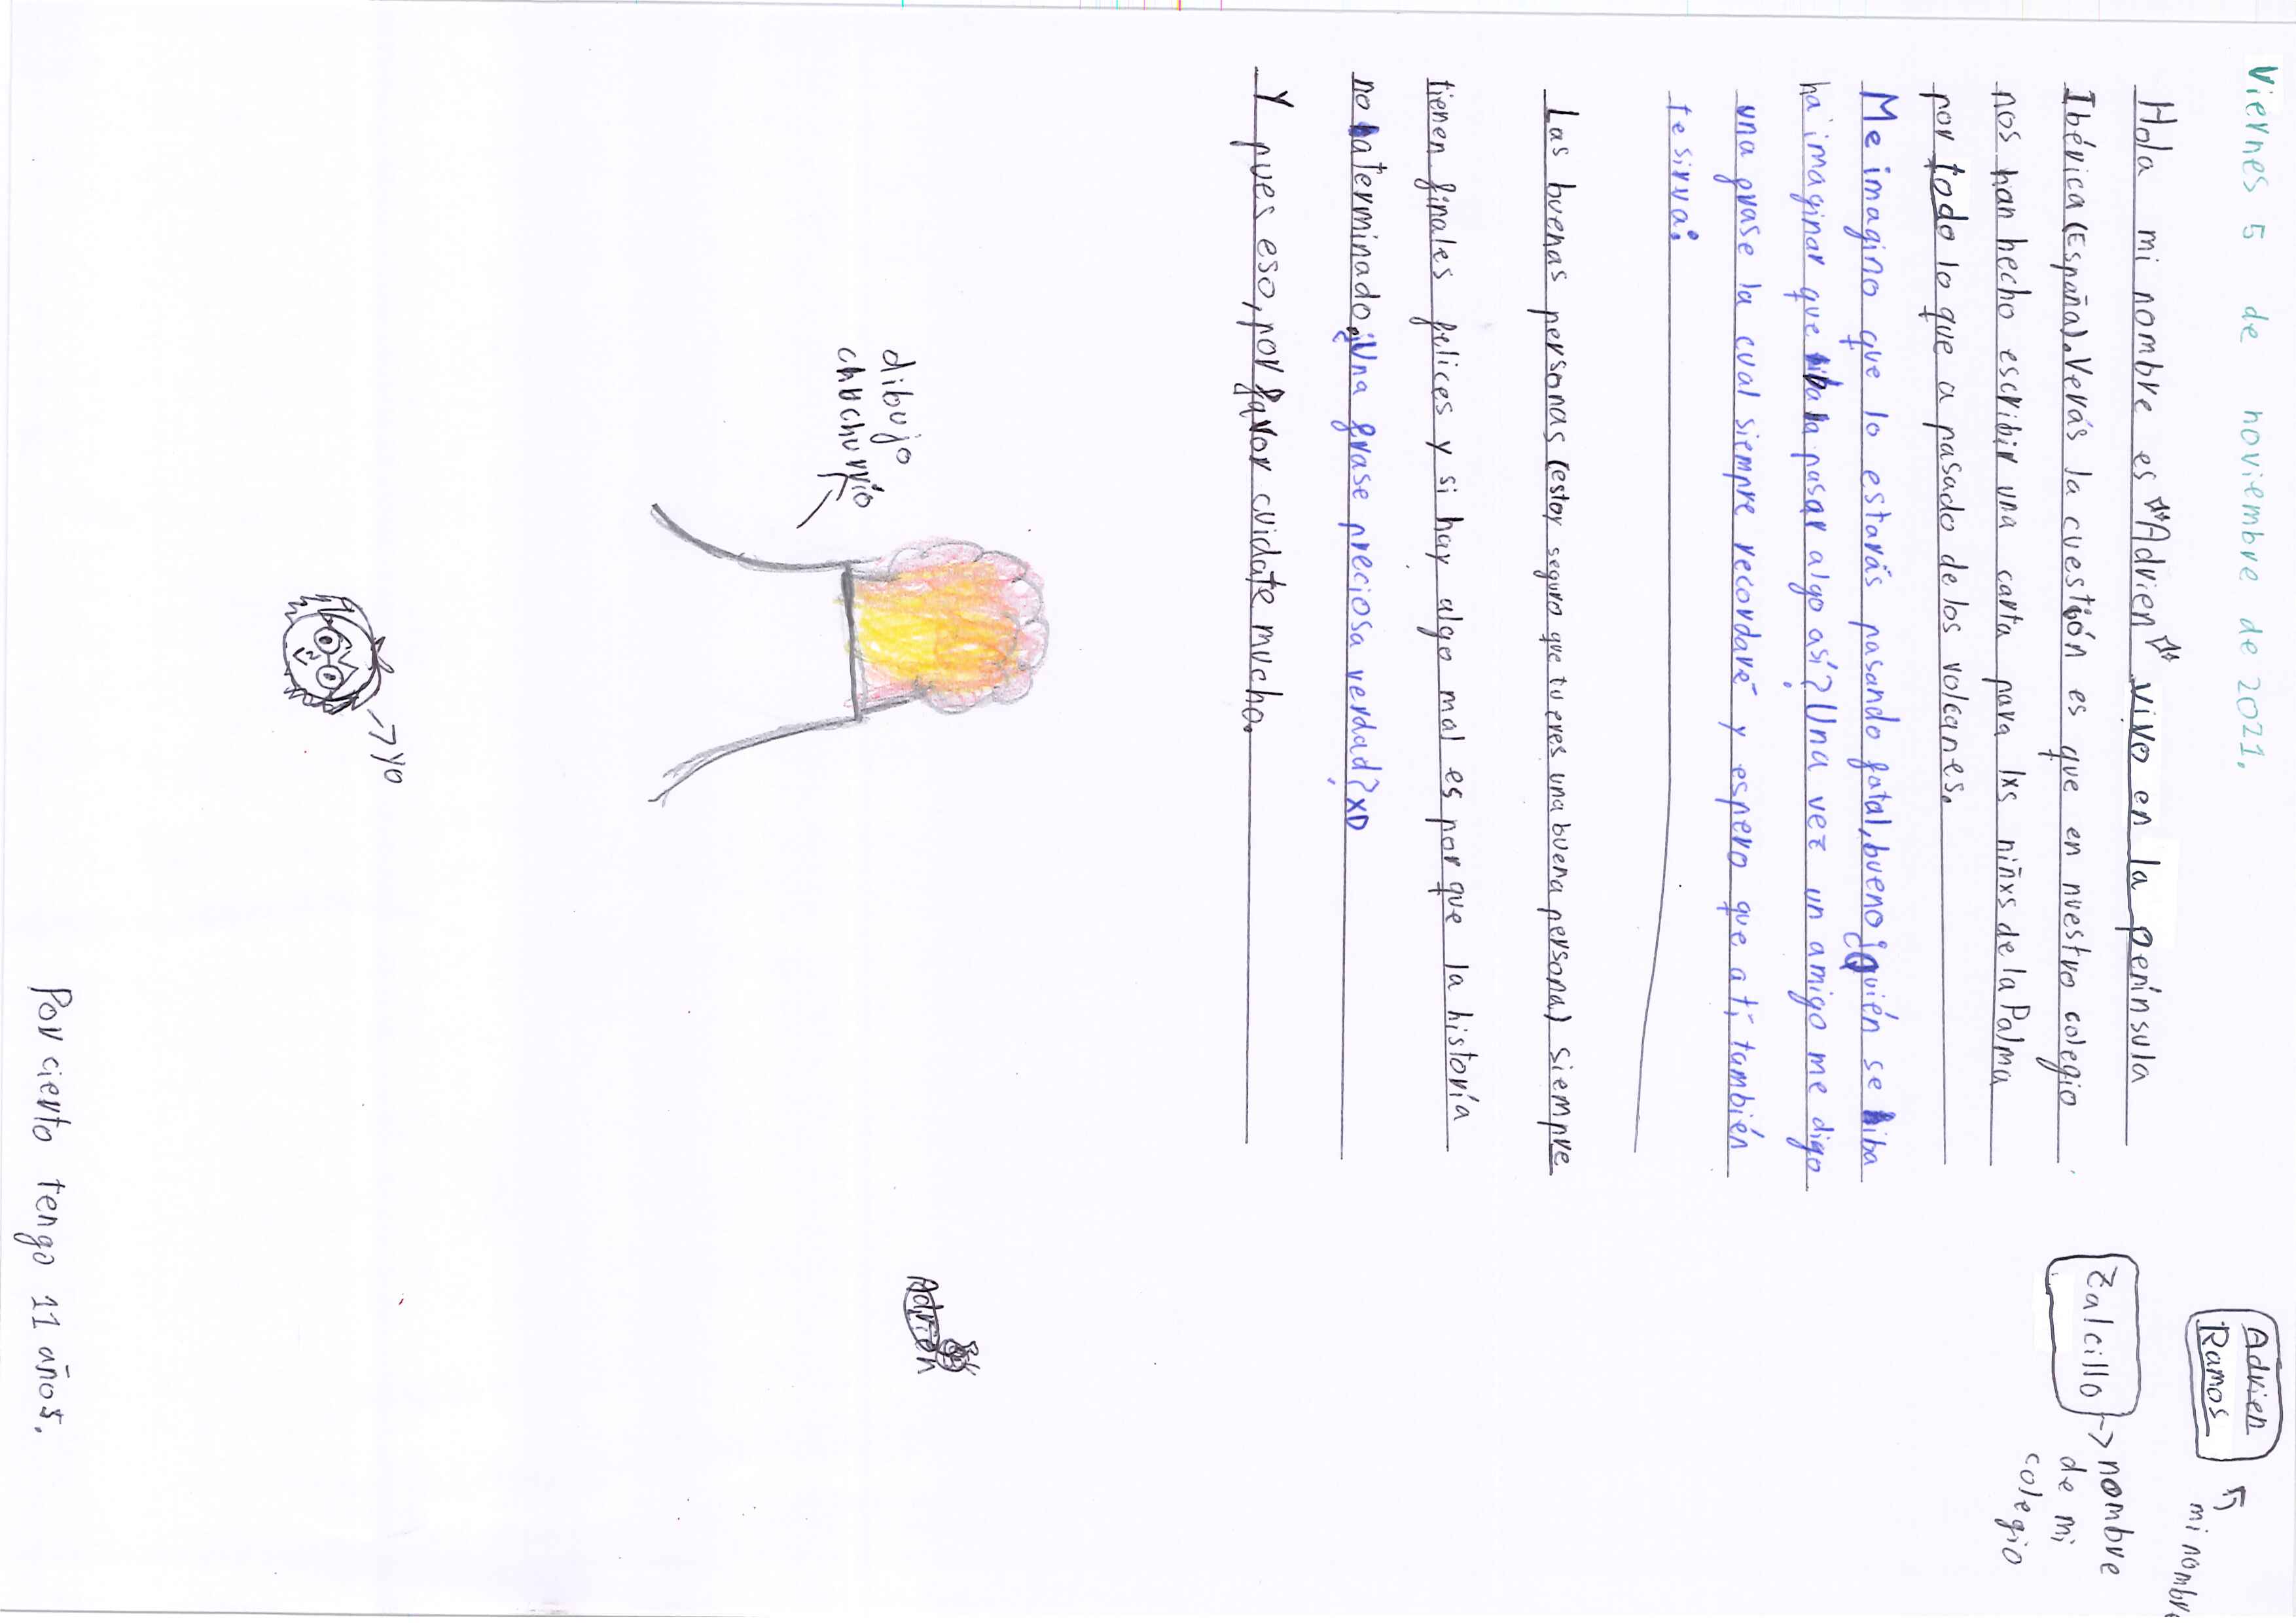 Viernes 5 de noviembre de 2021.
Adrien
Ramos
mi nombre
Zalcillo → nombre
de mi
colegio
Hola mi nombre es "Adrien" vivo en la península
Ibérica (España). Verás la cuestión es que en nuestro colegio
nos han hecho escribir una carta para lxs niñxs de la Palma
por todo lo que a pasado de los volcanes.
Me imagino que lo estarás pasando fatal, bueno ¿Quién se iba
ha imaginar que iba ha pasar algo así? Una vez un amigo me digo
una frase la cual siempre recordaré y espero que a tí también
te sirva:
Las buenas personas (estoy seguro que tu eres una buena persona) siempre
tienen finales felices y si hay algo mal es por que la historía
no a terminado. ¿Una frase preciosa verdad? XD
Y pues eso, por favor cuidate mucho.
dibujo
chuchurrío
Adrien
→ yo
Por cierto tengo 11 años.